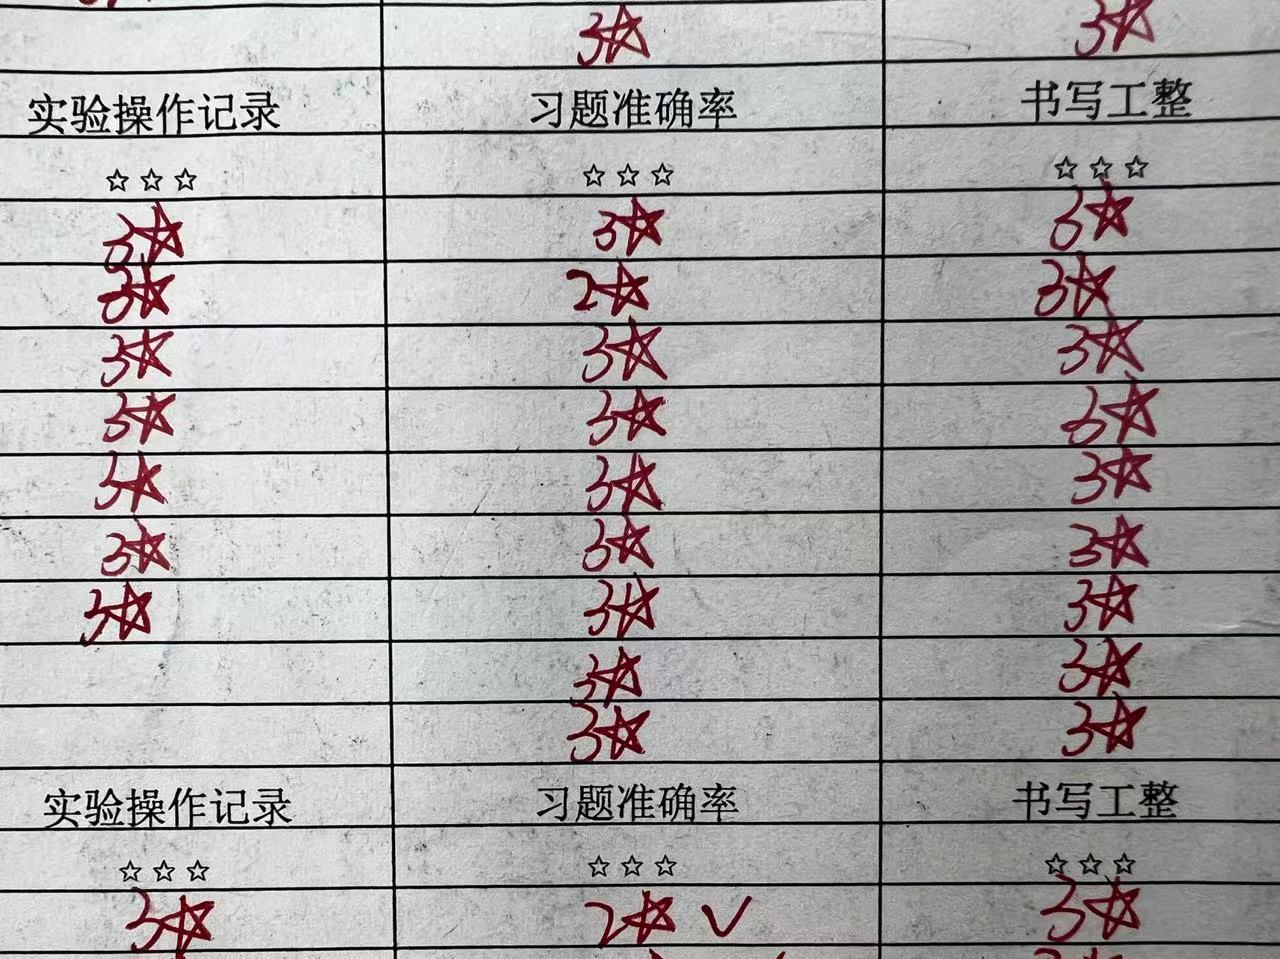 3☆ 3☆
实验操作记录 习题准确率 书写工整
☆☆☆ ☆☆☆ ☆☆☆
3☆ 3☆ 3☆
3☆ 2☆ 3☆
3☆ 3☆ 3☆
3☆ 3☆ 3☆
3☆ 3☆ 3☆
3☆ 3☆ 3☆
3☆ 3☆ 3☆
3☆ 3☆
3☆ 3☆
实验操作记录 习题准确率 书写工整
☆☆☆ ☆☆☆ ☆☆☆
3☆ 2☆ ✓ 3☆